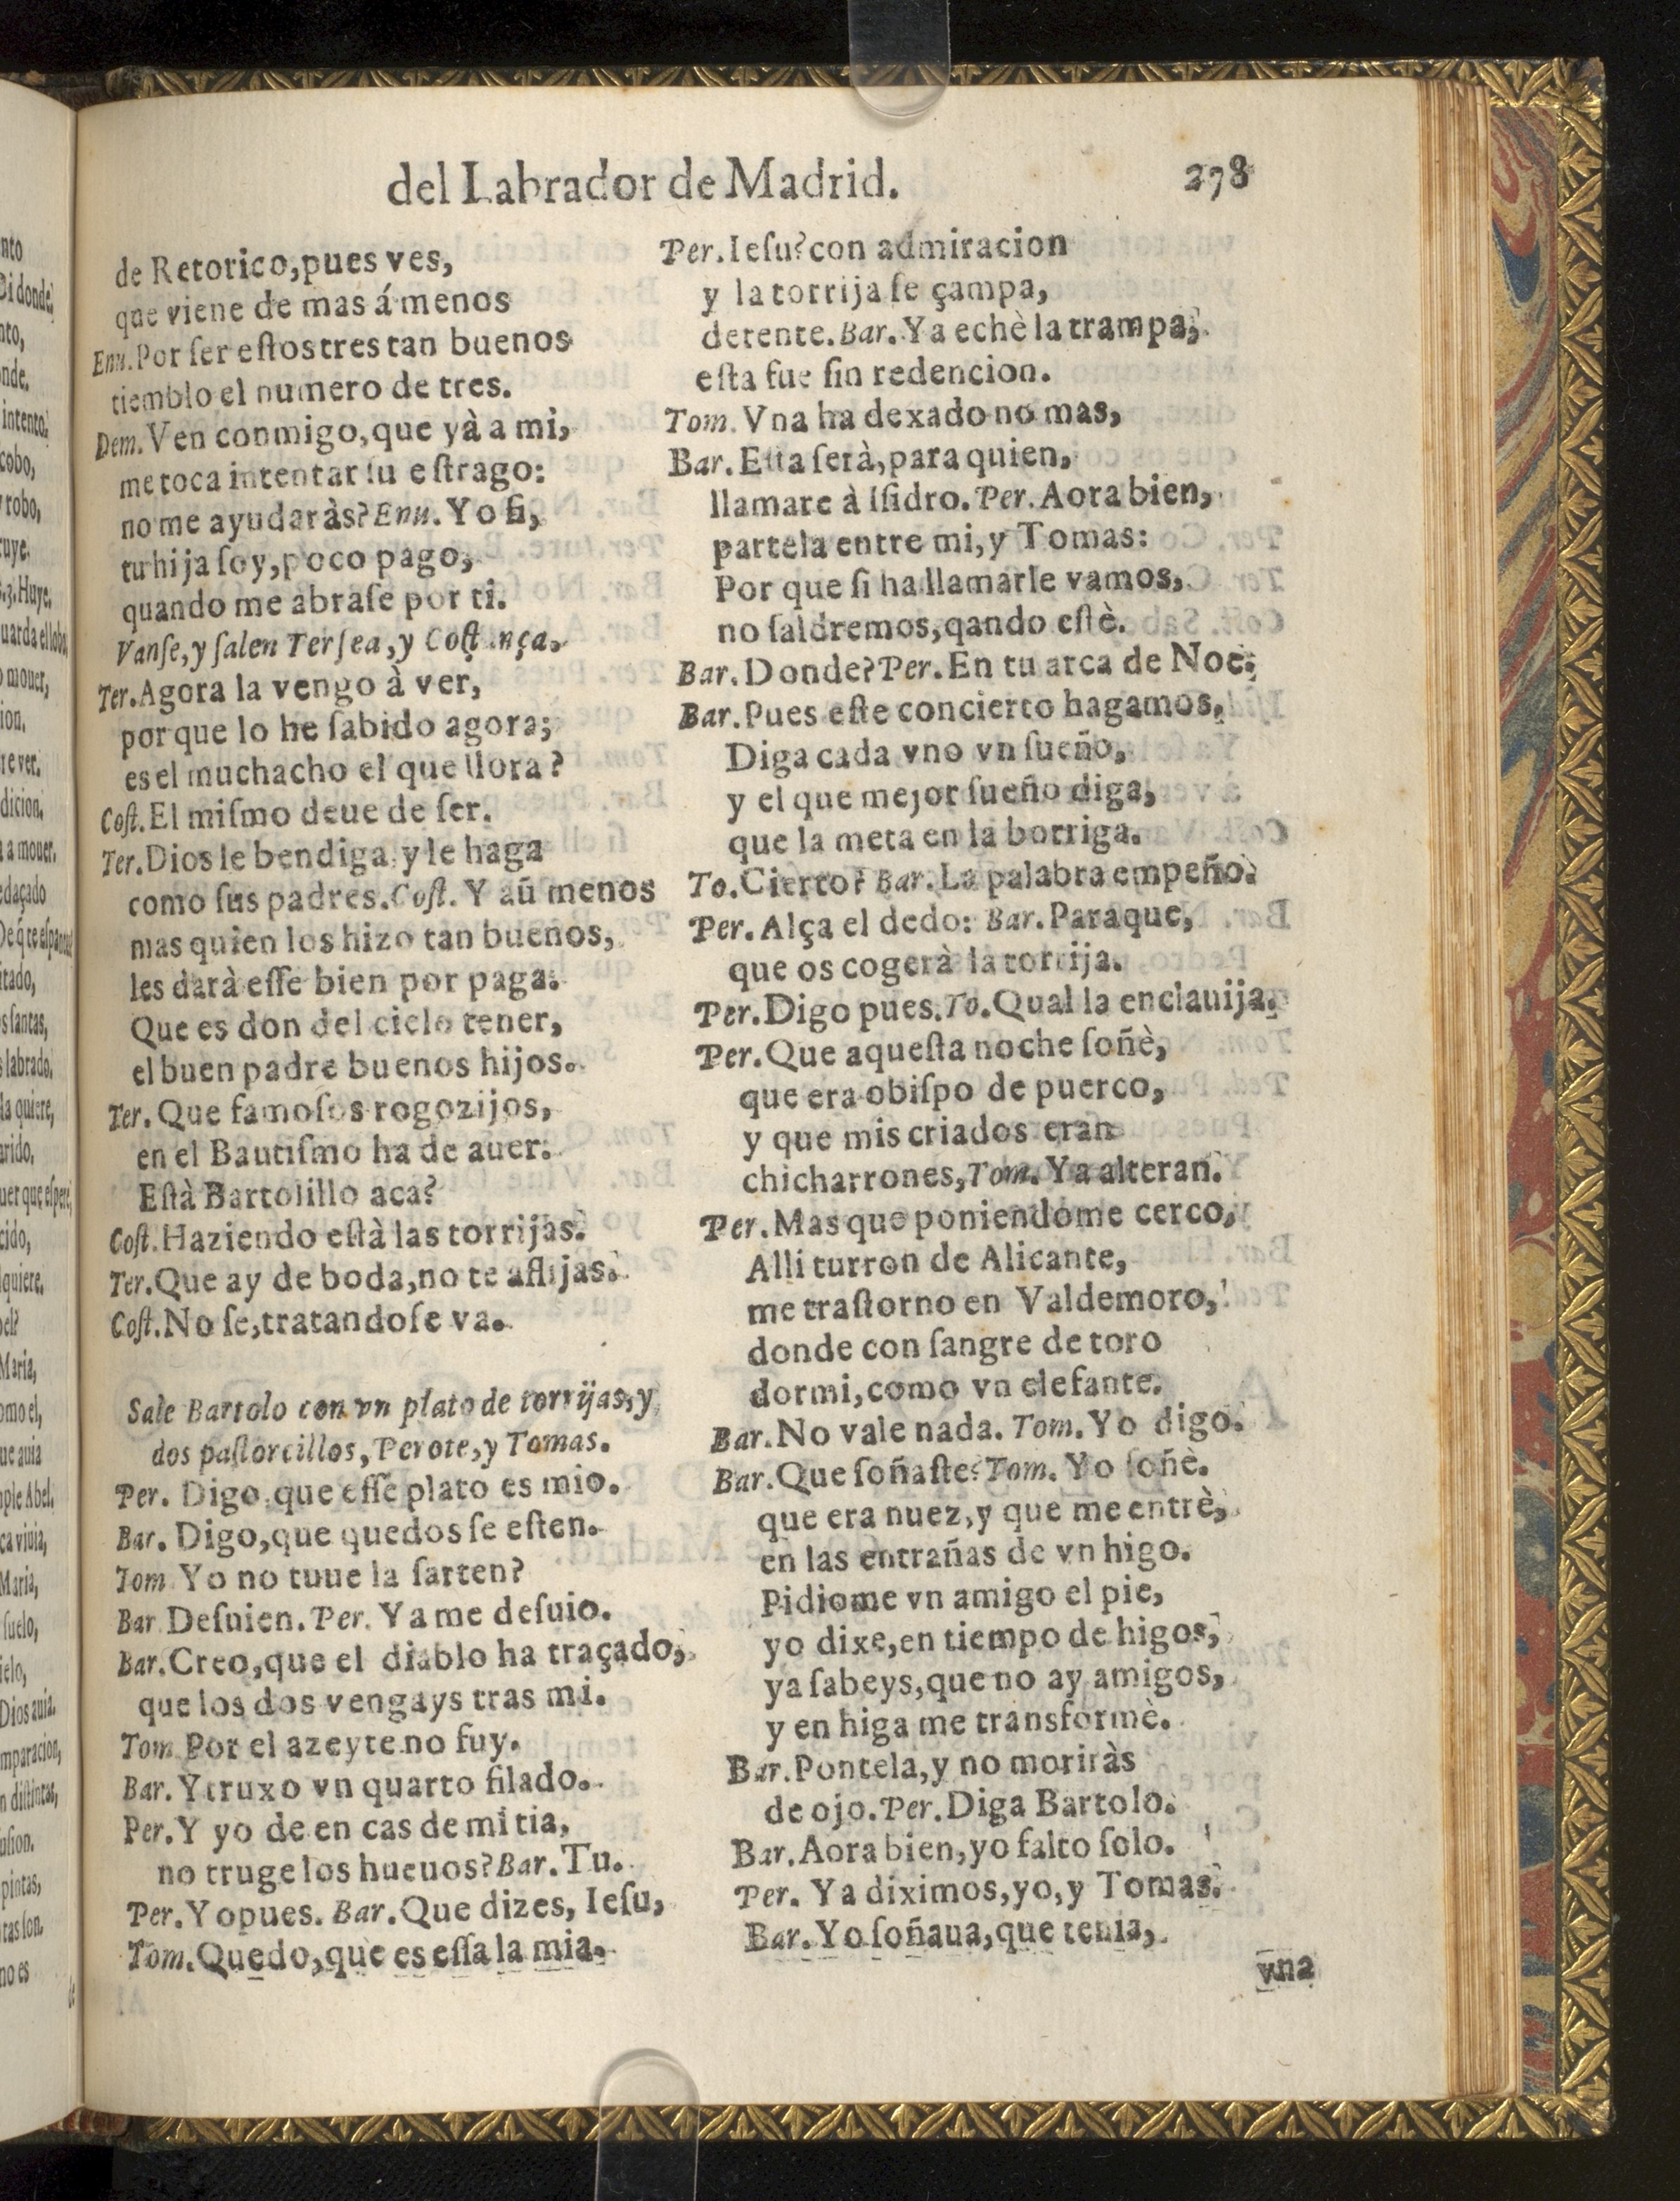 del Labrador de Madrid.
278
de Retorico, pues ves,
que viene de mas á menos
Enu. Por ſer eſtos tres tan buenos
tiemblo el numero de tres.
Dem. Ven conmigo, que yà a mi,
me toca intentar ſu eſtrago:
no me ayudaràs? Enu. Yo ſi,
tu hija ſoy, poco pago,
quando me abraſe por ti.
Vanſe, y ſalen Terſea, y Coſt nça.
Ter. Agora la vengo à ver,
porque lo he ſabido agora;
es el muchacho el que llora?
Coſt. El miſmo deue de ſer.
Ter. Dios le bendiga, y le haga
como ſus padres. Coſt. Y aũ menos
mas quien los hizo tan buenos,
les darà eſſe bien por paga.
Que es don del cielo tener,
el buen padre buenos hijos.
Ter. Que famoſos rogozijos,
en el Bautiſmo ha de auer.
Eſtà Bartolillo aca?
Coſt. Haziendo eſtà las torrijas.
Ter. Que ay de boda, no te aflijas.
Coſt. No ſe, tratandoſe va.
Sale Bartolo con vn plato de torrijas, y
dos paſtorcillos, Perote, y Tomas.
Per. Digo, que eſſe plato es mio.
Bar. Digo, que quedos ſe eſten.
Tom Yo no tuue la ſarten?
Bar Deſuien. Per. Ya me deſuio.
Bar. Creo, que el diablo ha traçado,
que los dos vengays tras mi.
Tom Por el azeyte no fuy.
Bar. Y truxo vn quarto filado.
Per. Y yo de en cas de mi tia,
no truge los hueuos? Bar. Tu.
Per. Yo pues. Bar. Que dizes, Ieſu,
Tom. Quedo, que es eſſa la mia.
Per. Ieſu? con admiracion
y la torrija ſe çampa,
detente. Bar. Ya echè la trampa,
eſta fue ſin redencion.
Tom. Vna ha dexado no mas,
Bar. Eſta ſerà, para quien,
llamare à Iſidro. Per. Aora bien,
partela entre mi, y Tomas:
Por que ſi ha llamarle vamos,
no ſaldremos, qando eſtè.
Bar. Donde? Per. En tu arca de Noe.
Bar. Pues eſte concierto hagamos,
Diga cada vno vn ſueño,
y el que mejor ſueño diga,
que la meta en la borriga.
To. Cierto? Bar. La palabra empeño.
Per. Alça el dedo: Bar. Paraque,
que os cogerà la torrija.
Per. Digo pues. To. Qual la enclauija.
Per. Que aqueſta noche ſoñè,
que era obiſpo de puerco,
y que mis criados eran
chicharrones, Tom. Ya alteran.
Per. Mas que poniendome cerco,
Alli turron de Alicante,
me traſtorno en Valdemoro,
donde con ſangre de toro
dormi, como vn elefante.
Bar. No vale nada. Tom. Yo digo.
Bar. Que ſoñaſte? Tom. Yo ſoñè.
que era nuez, y que me entrè,
en las entrañas de vn higo.
Pidiome vn amigo el pie,
yo dixe, en tiempo de higos,
ya ſabeys, que no ay amigos,
y en higa me transformè.
Bar. Pontela, y no moriràs
de ojo. Per. Diga Bartolo.
Bar. Aora bien, yo falto ſolo.
Per. Ya diximos, yo, y Tomas.
Bar. Yo ſoñaua, que tenia,
vna